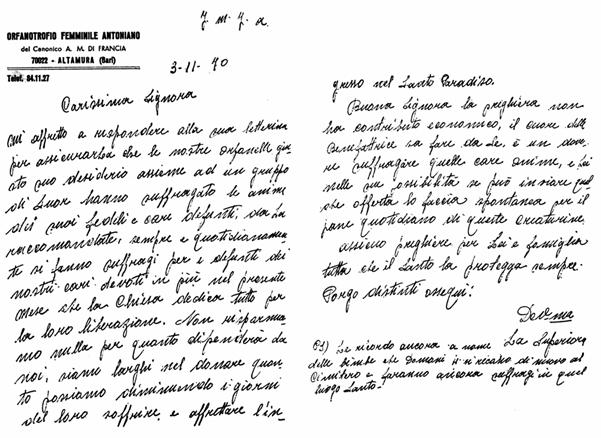 J. M. J. A.
ORFANOTROFIO FEMMINILE ANTONIANO
del Canonico A. M. DI FRANCIA
70022 - ALTAMURA (Bari)
Telef. 84.11.27
3-11-70
Carissima Signora
mi affretto a rispondere alla sua letterina
per assicurarla che le nostre orfanelle giu
sto suo desiderio assieme ad un gruppo
di Suore hanno suffragato le anime
dei suoi fedeli e cari defunti, da La
raccomandate, sempre e quotidianamen
te si fanno suffragi per i defunti dei
nostri cari devoti in più nel presente
mese che la Chiesa dedica tutto per
la loro liberazione. Non risparmia
mo nulla per quanto dipenderà da
noi, siamo larghi nel donare quan
to possiamo diminuendo i giorni
del loro soffrire, e affrettare l'in
gresso nel Santo Paradiso.
Buona Signora la preghiera non
ha contributo economico, il cuore delle
Benefattrice sa fare da Se, è un dove
re suffragare quelle care anime, e Lei
nelle sue possibilità se può inviare qual
che offerta lo faccia spontanea per il
pane quotidiano di queste creaturine,
assicuro preghiere per Lei e famiglia
tutta che il Santo la protegga sempre.
Porgo distinti ossequi!
Dev.ma
La Superiora
PS) Le ricordo ancora a nome
delle bimbe che domani si recano di nuovo al
Cimitero e faranno ancora suffragi in quel
luogo Santo.